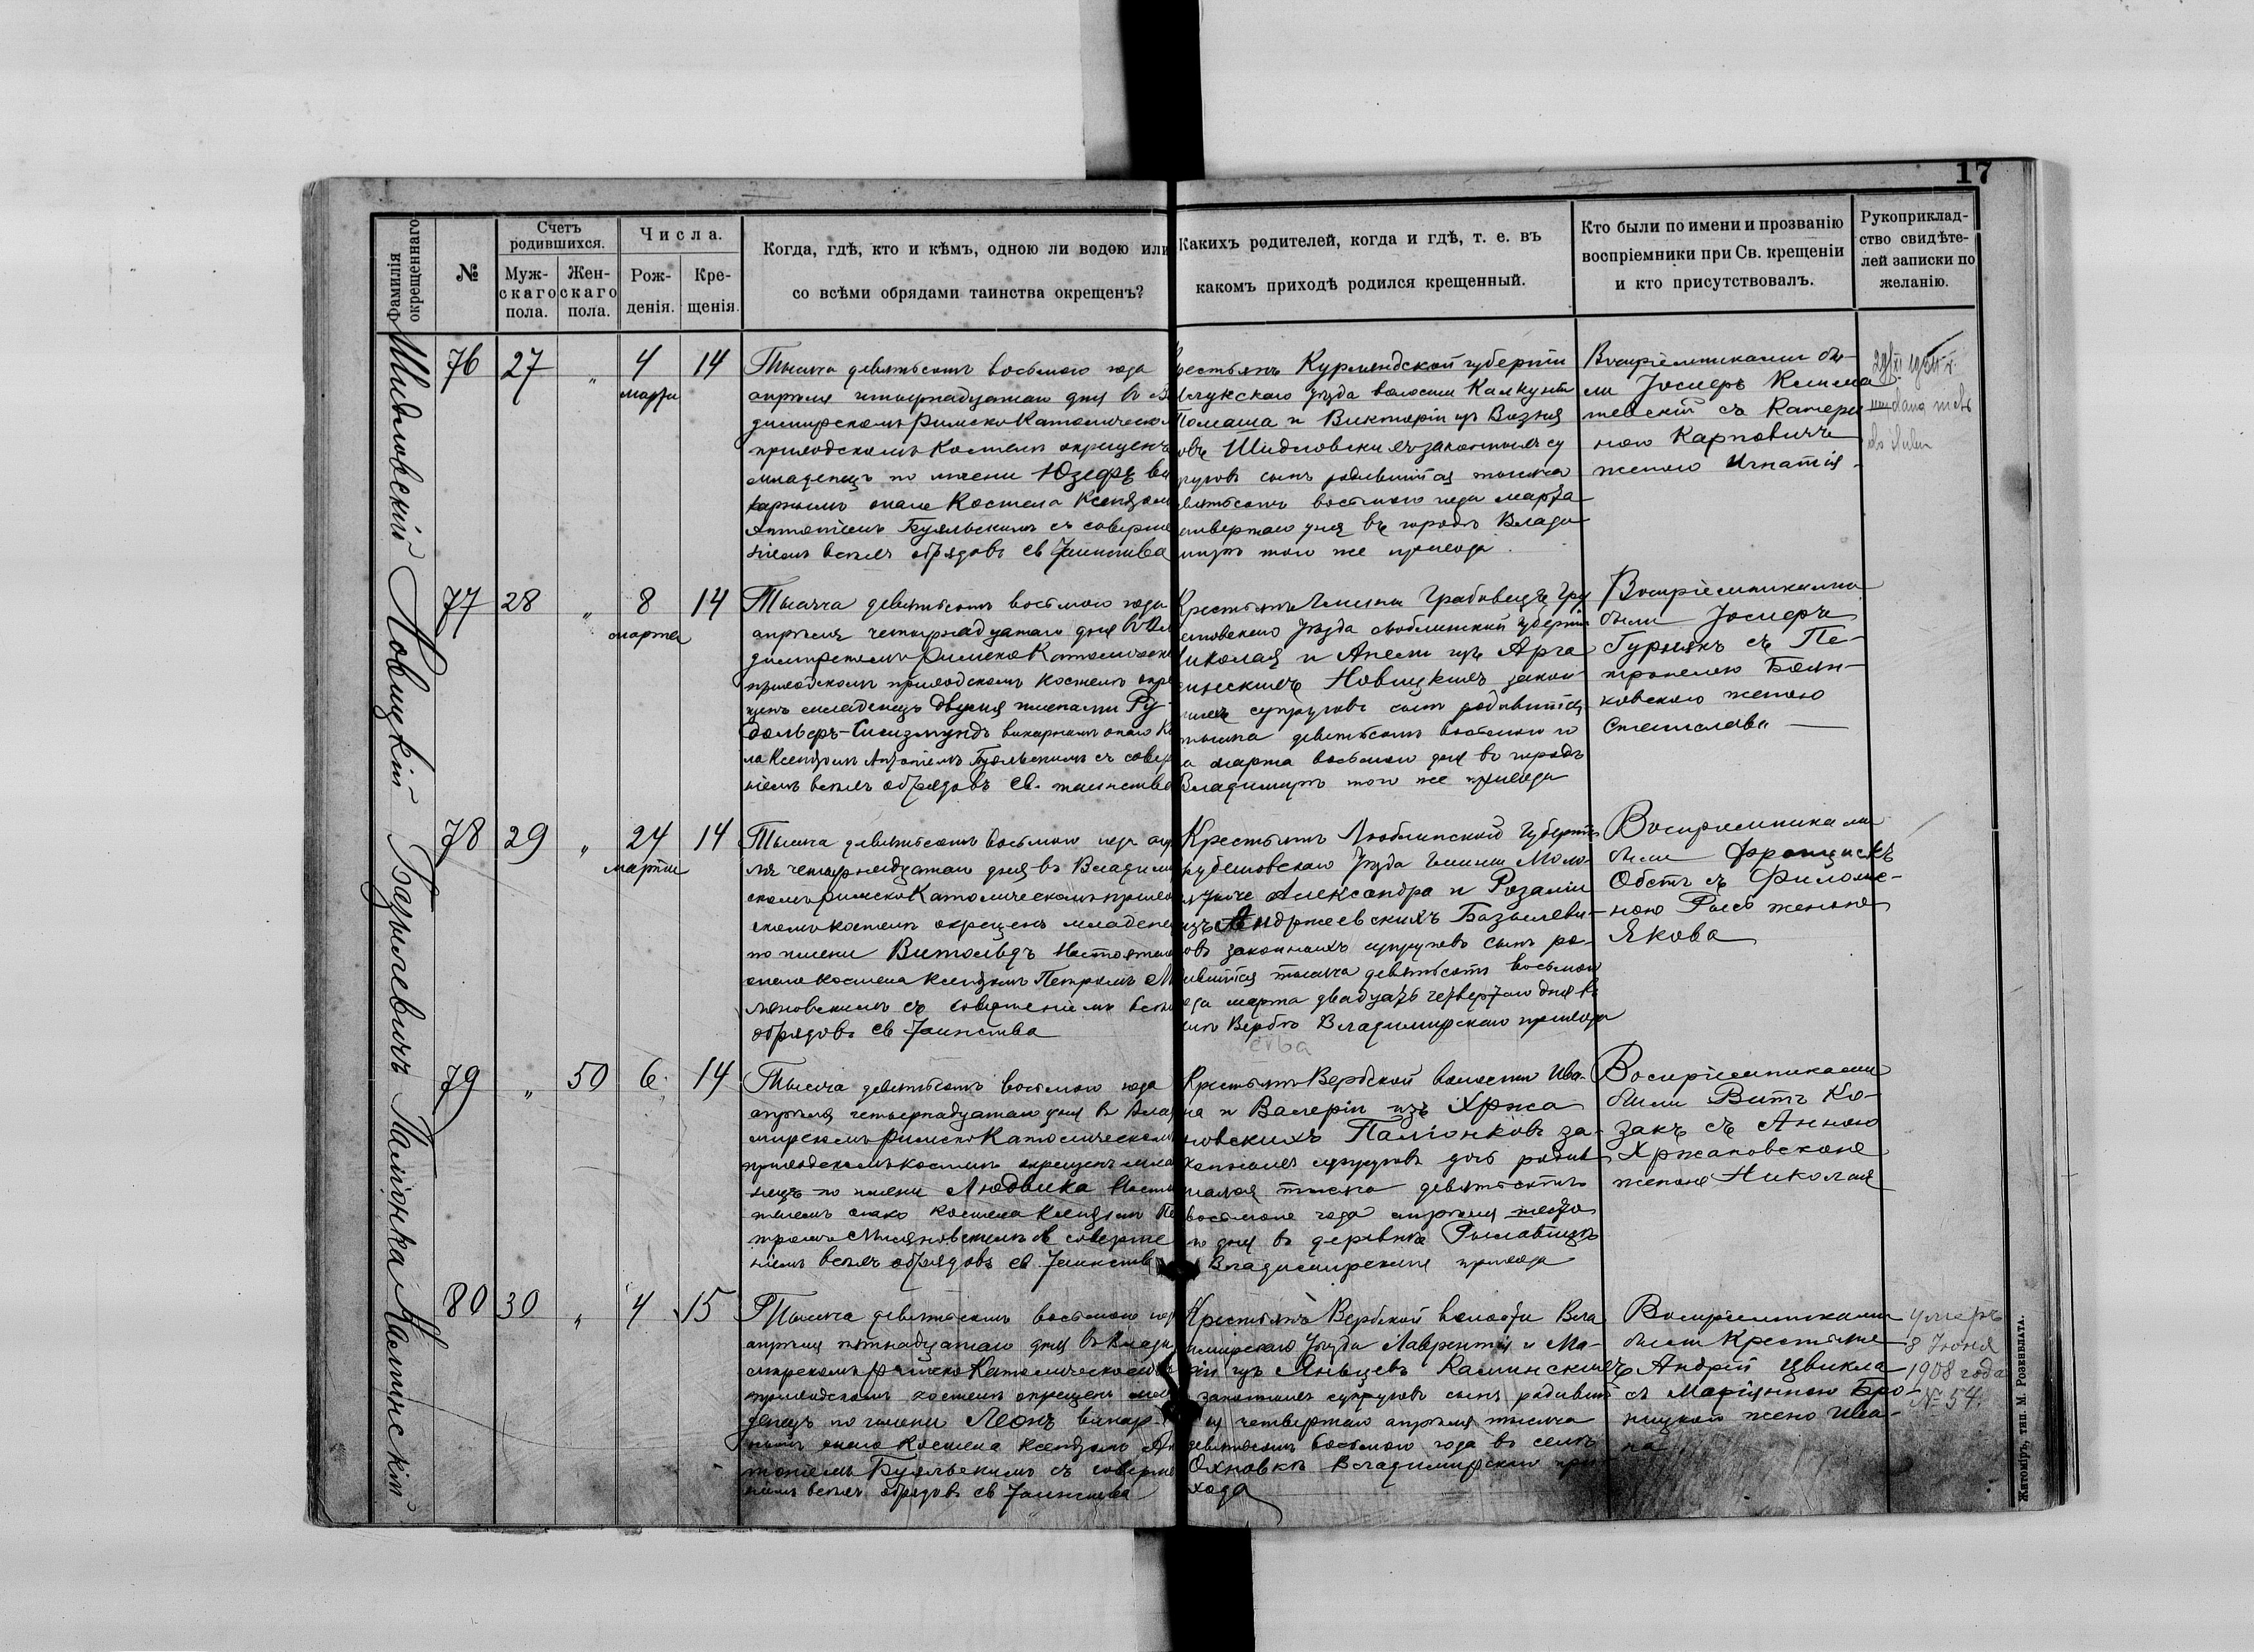 17
Фамилія окрещеннаго
№
Счетъ родившихся.
Муж-
скаго
пола.
Жен-
скаго
пола.
Числа.
Рож-
денія.
Кре-
щенія.
Когда, гдѣ, кто и кѣмъ, одною ли водою или
со всѣми обрядами таинства окрещенъ?
Какихъ родителей, когда и гдѣ, т. е. въ
какомъ приходѣ родился крещенный.
Кто были по имени и прозванію
воспріемники при Св. крещеніи
и кто присутствовалъ.
Рукоприклад-
ство свидѣте-
лей записки по
желанію.
Шидловскій
76 27 " 4 марта 14
Тысяча девятьсотъ восьмого года
апрѣля четырнадцатаго дня въ
димирскомъ Римско Католическо
приходскомъ Костелѣ окрещенъ
младенецъ по имени Юзефъ ви
карнымъ онаго Костела Ксендзом
Антоніемъ Буяльскимъ съ соверше
ніемъ всѣхъ обрядовъ св Таинства
рестьянъ Курляндской губерніи
уѣзда волости Калкунъ
Томаша и Викторіи изъ Возня
овъ Шидловскихъ законныхъ су
руговъ сынъ родившійся тысяча
девятьсотъ восьмого года марта
етвертаго дня въ городѣ Влади
мирѣ того же прихода.
Воспріемниками бы-
ли Іосифъ
съ Катери
ною Карповичъ
женою Игнатія.
Новицкій
77 28 " 8 марта 14
Тысяча девятьсотъ восьмого года
апрѣля четырнадцатаго дня въ Вла
димирскомъ Римско Католическо
приходскомъ приходскомъ костелѣ окре
щенъ младенецъ двумя именами Ру-
дольфъ-Сигизмундъ викарнымъ онаго Ко
ла Ксендзомъ Антоніемъ Буяльскимъ съ совер
ніемъ всѣхъ обрядовъ св. таинства
Крестьянъ Гмины Грабовецъ Гру
бешовскаго уѣзда Люблинской губерніи
Николая и Анели изъ Арга
синскихъ Новицкихъ закон-
ныхъ супруговъ сынъ родившійся
тысяча девятьсотъ восьмого го
а марта восьмого дня въ городѣ
Владимирѣ того же прихода
Воспріемниками
были Іосифъ
Гурнякъ съ Пе-
тронелею
ковскою женою
Станислава
Базылевичъ
78 29 " 24 марта 14
Тысяча девятьсотъ восьмого года апр
ля четырнадцатаго дня въ Владимир
скомъ Римско Католическомъ приход
скомъ костелѣ окрещенъ младенец
по имени Витольдъ Настоятелем
онаго костела Ксендзомъ Петромъ М
съ совершеніемъ всѣхъ
обрядовъ св Таинства
Крестьянъ Люблинской губерніи
рубешовскаго уѣзда Гмины Моло-
Александра и Розаліи
изъ Андржеевскихъ Базылеви-
овъ законныхъ супруговъ сынъ ро-
ившійся тысяча девятьсотъ восьмого
ода марта двадцать четвертаго дня въ
Вербѣ Владимирскаго прихода
Воспріемниками
были Францискъ
съ Филоме-
ною женою
Якова
Паліонка
79 " 50 6 14
Тысяча девятьсотъ восьмого года
апрѣля четырнадцатаго дня въ Влад
мирскомъ Римско Католическомъ
приходскомъ костелѣ окрещенъ мла
нецъ по имени Людвика Насто
телемъ онаго костела Ксендзомъ Пе
тромъ съ соверше
ніемъ всѣхъ обрядовъ св Таинства
Крестьянъ Вербской волости Ива-
на и Валеріи изъ Хржа
новскихъ Паліонковъ за-
конныхъ супруговъ дочь родив
шаяся тысяча девятьсотъ
восьмого года апрѣля шесто
го дня въ деревнѣ
Владимирскаго прихода
Воспріемниками
были Витъ Ко-
закъ съ Анною
Хржановскою
женою Николая
Калинскій
80 30 " 4 15
Тысяча девятьсотъ восьмого год
апрѣля пятнадцатаго дня въ Влади
мирскомъ Римско Католическомъ
приходскомъ костелѣ окрещенъ мла
денецъ по имени Леонъ викар-
нымъ онаго Костела Ксендзомъ Ан
тоніемъ Буяльскимъ съ соверше
ніемъ всѣхъ обрядовъ св Таинства
Крестьянъ Вербской волости Вла
димирскаго уѣзда Лаврентія и Ма-
ріи изъ Калинскихъ
законныхъ супруговъ сынъ родивші
ся четвертаго апрѣля тысяча
девятьсотъ восьмого года въ селѣ
Охновкѣ Владимирскаго при
хода
Воспріемниками
были Крестьяне
Андрей Цвикла
съ Маріянною Бро-
ницкой жено Ива-
на
умеръ
8 Іюня
1908 года
№ 54.
Житоміръ, тип. М. Розенблата.